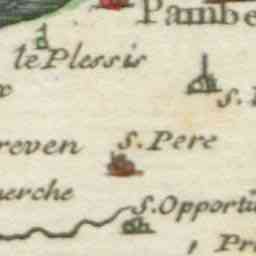 Pambe
le Plessis
S.
reven
S. Pere
herche
S. Opportu
Pr